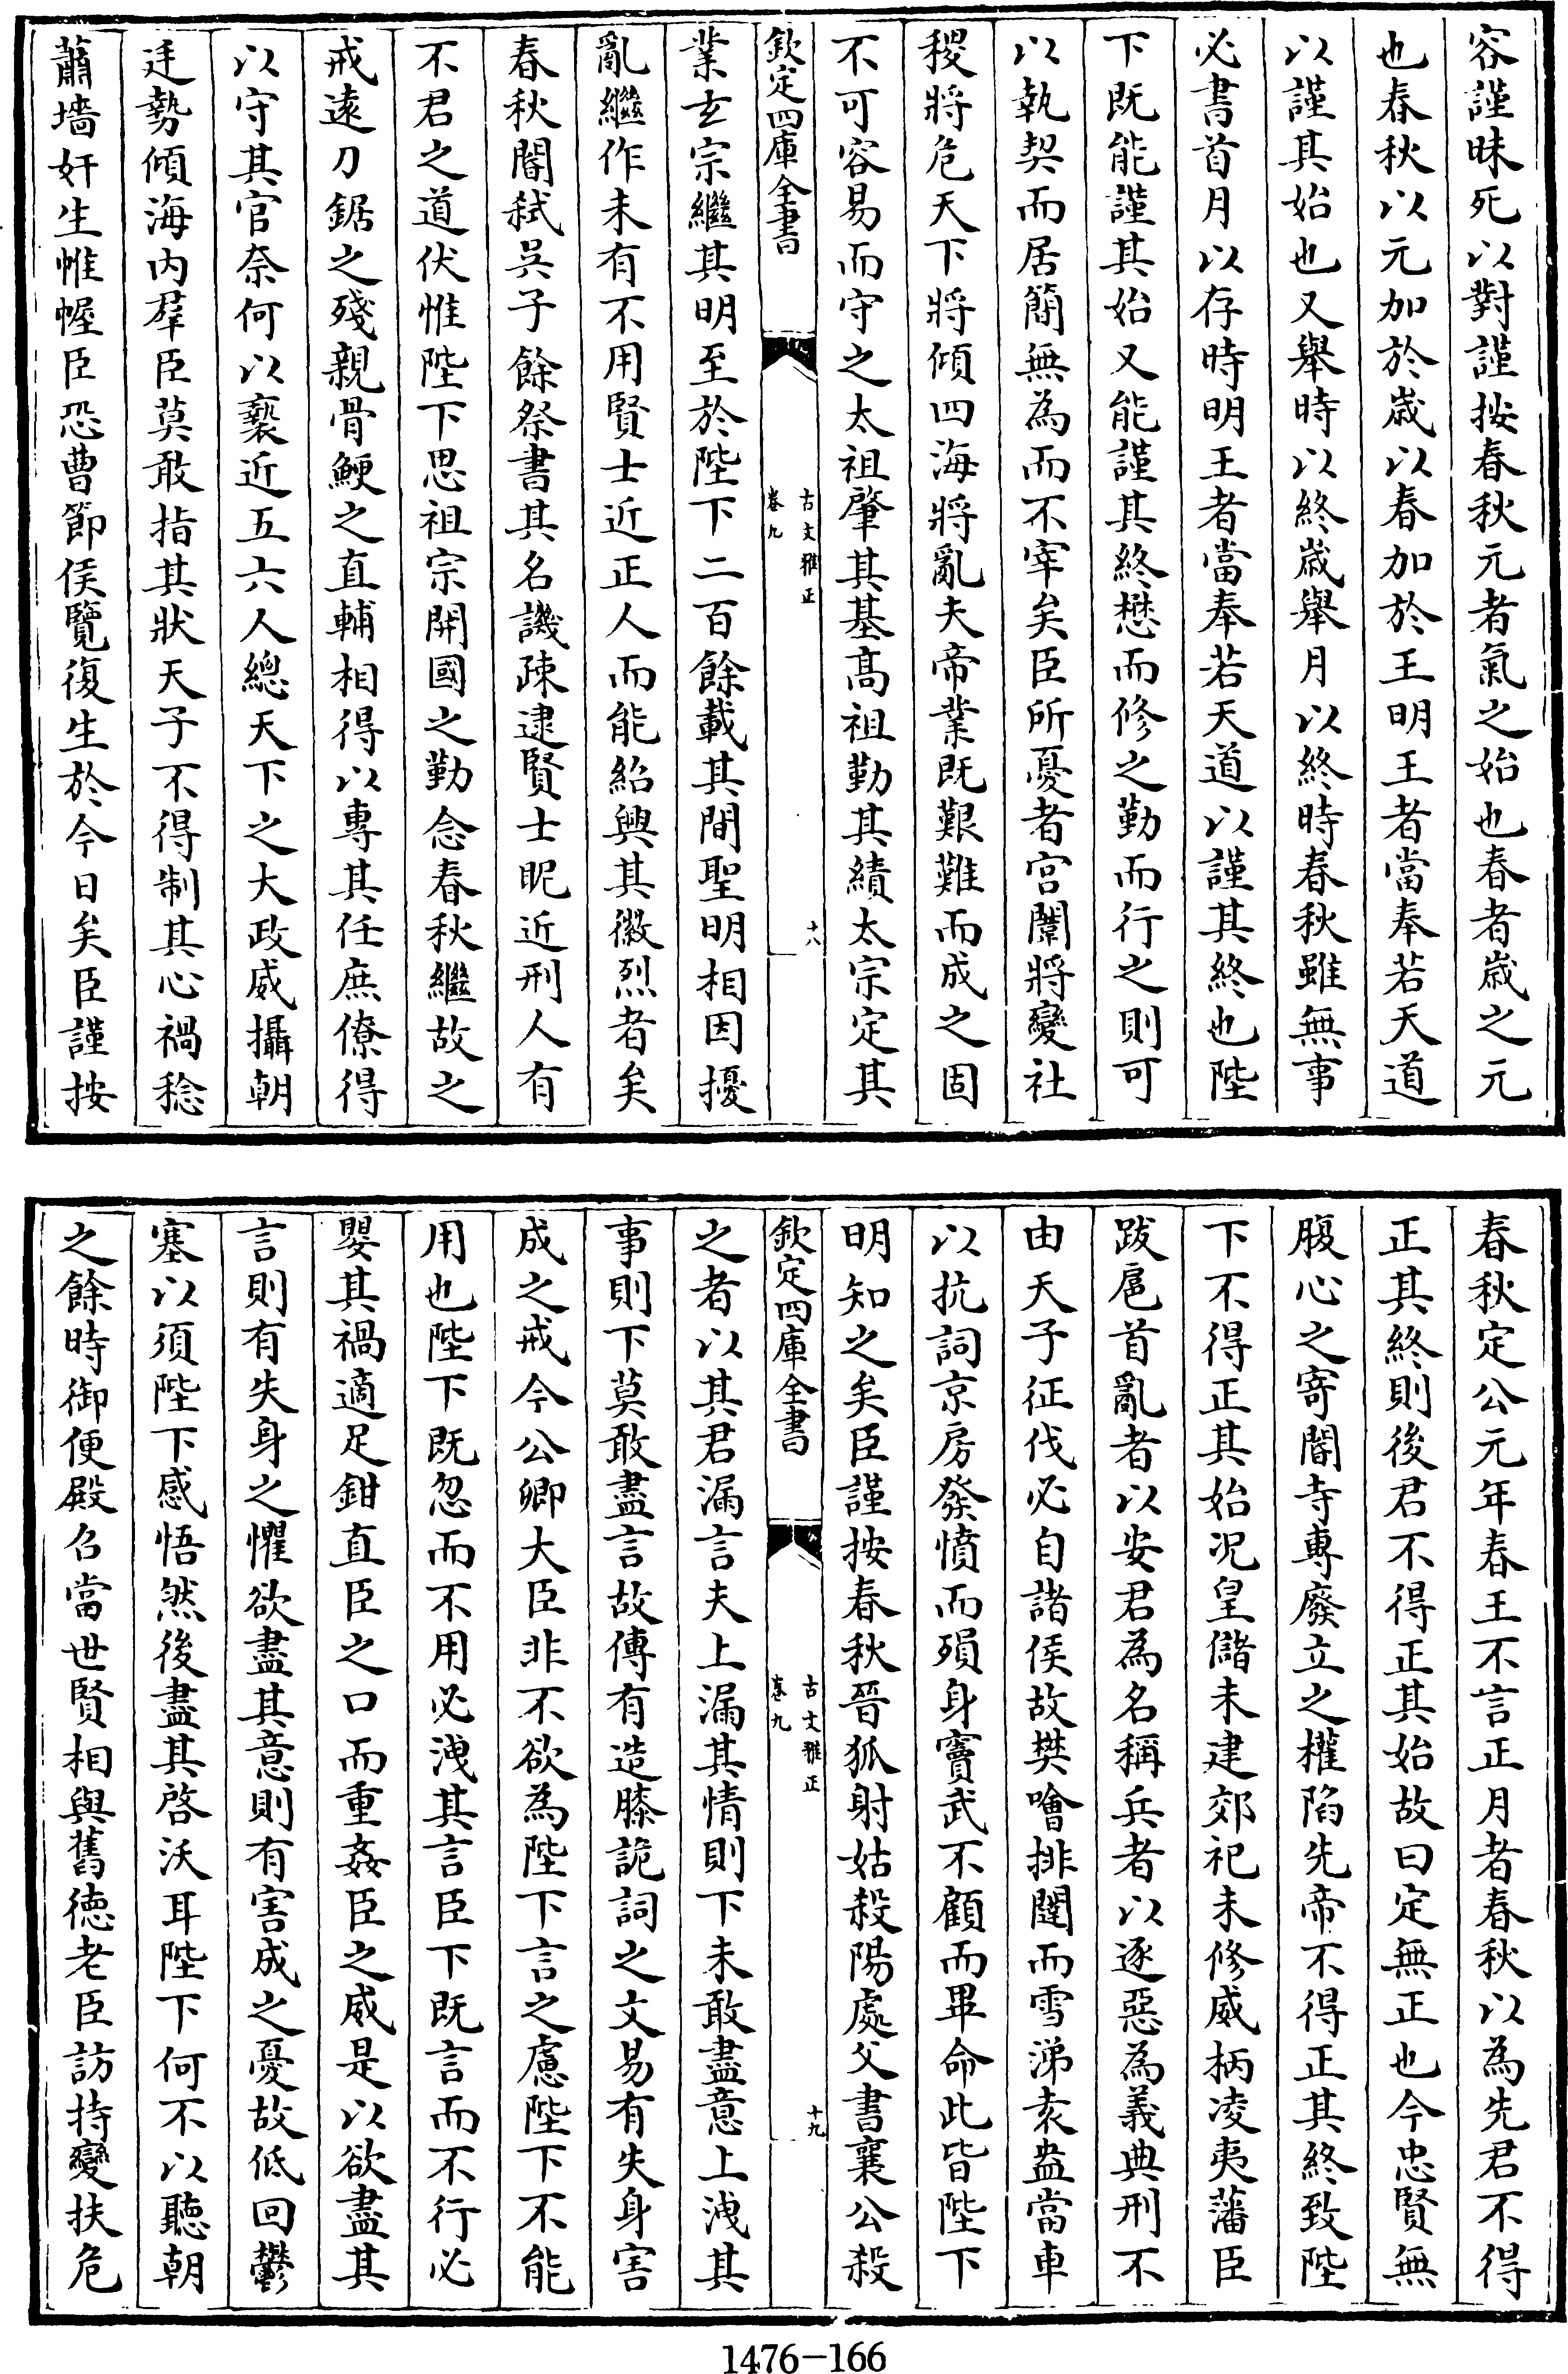 容謹昧死以對謹按春秋元者氣之始也春者嵗之元
也春秋以元加於嵗以春加於王明王者當奉若天道
以謹其始也又舉時以終嵗舉月以終時春秋雖無事
必書首月以存時明王者當奉若天道以謹其終也陛
下既能謹其始又能謹其終懋而修之勤而行之則可
以執契而居簡無為而不宰矣臣所憂者宫闈將變社
稷將危天下將傾四海將亂夫帝業既艱難而成之固
不可容易而守之太祖肇其基髙祖勤其績太宗定其
欽定四庫全書
古文雅正
卷九
十八
業𤣥宗繼其明至於陛下二百餘載其間聖明相因擾
亂繼作未有不用賢士近正人而能紹興其徽烈者矣
春秋閽弑吳子餘祭書其名譏疎逮賢士昵近刑人有
不君之道伏惟陛下思祖宗開國之勤念春秋繼故之
戒逺刀鋸之殘親骨鯁之直輔相得以專其任庶僚得
以守其官奈何以䙝近五六人總天下之大政威攝朝
廷勢傾海内羣臣莫敢指其狀天子不得制其心禍稔
蕭墻奸生帷幄臣恐曹節侯覽復生於今日矣臣謹按
春秋定公元年春王不言正月者春秋以為先君不得
正其終則後君不得正其始故曰定無正也今忠賢無
腹心之寄閽寺専廢立之權陷先帝不得正其終致陛
下不得正其始况皇儲未建郊祀未修威柄凌夷藩臣
跋扈首亂者以安君為名稱兵者以逐惡為義典刑不
由天子征伐必自諸侯故樊噲排闥而雪涕袁盎當車
以抗詞京房發憤而殞身竇武不顧而畢命此皆陛下
明知之矣臣謹按春秋晉狐射姑殺陽處父書襄公殺
欽定四庫全書
古文雅正
卷九
十九
之者以其君漏言夫上漏其情則下未敢盡意上洩其
事則下莫敢盡言故傳有造膝詭詞之文易有失身害
成之戒今公卿大臣非不欲為陛下言之慮陛下不能
用也陛下既忽而不用必洩其言臣下既言而不行必
嬰其禍適足鉗直臣之口而重姦臣之威是以欲盡其
言則有失身之懼欲盡其意則有害成之憂故低回鬱
塞以須陛下感悟然後盡其啓沃耳陛下何不以聽朝
之餘時御便殿召當世賢相與舊徳老臣訪持變扶危
1476-166